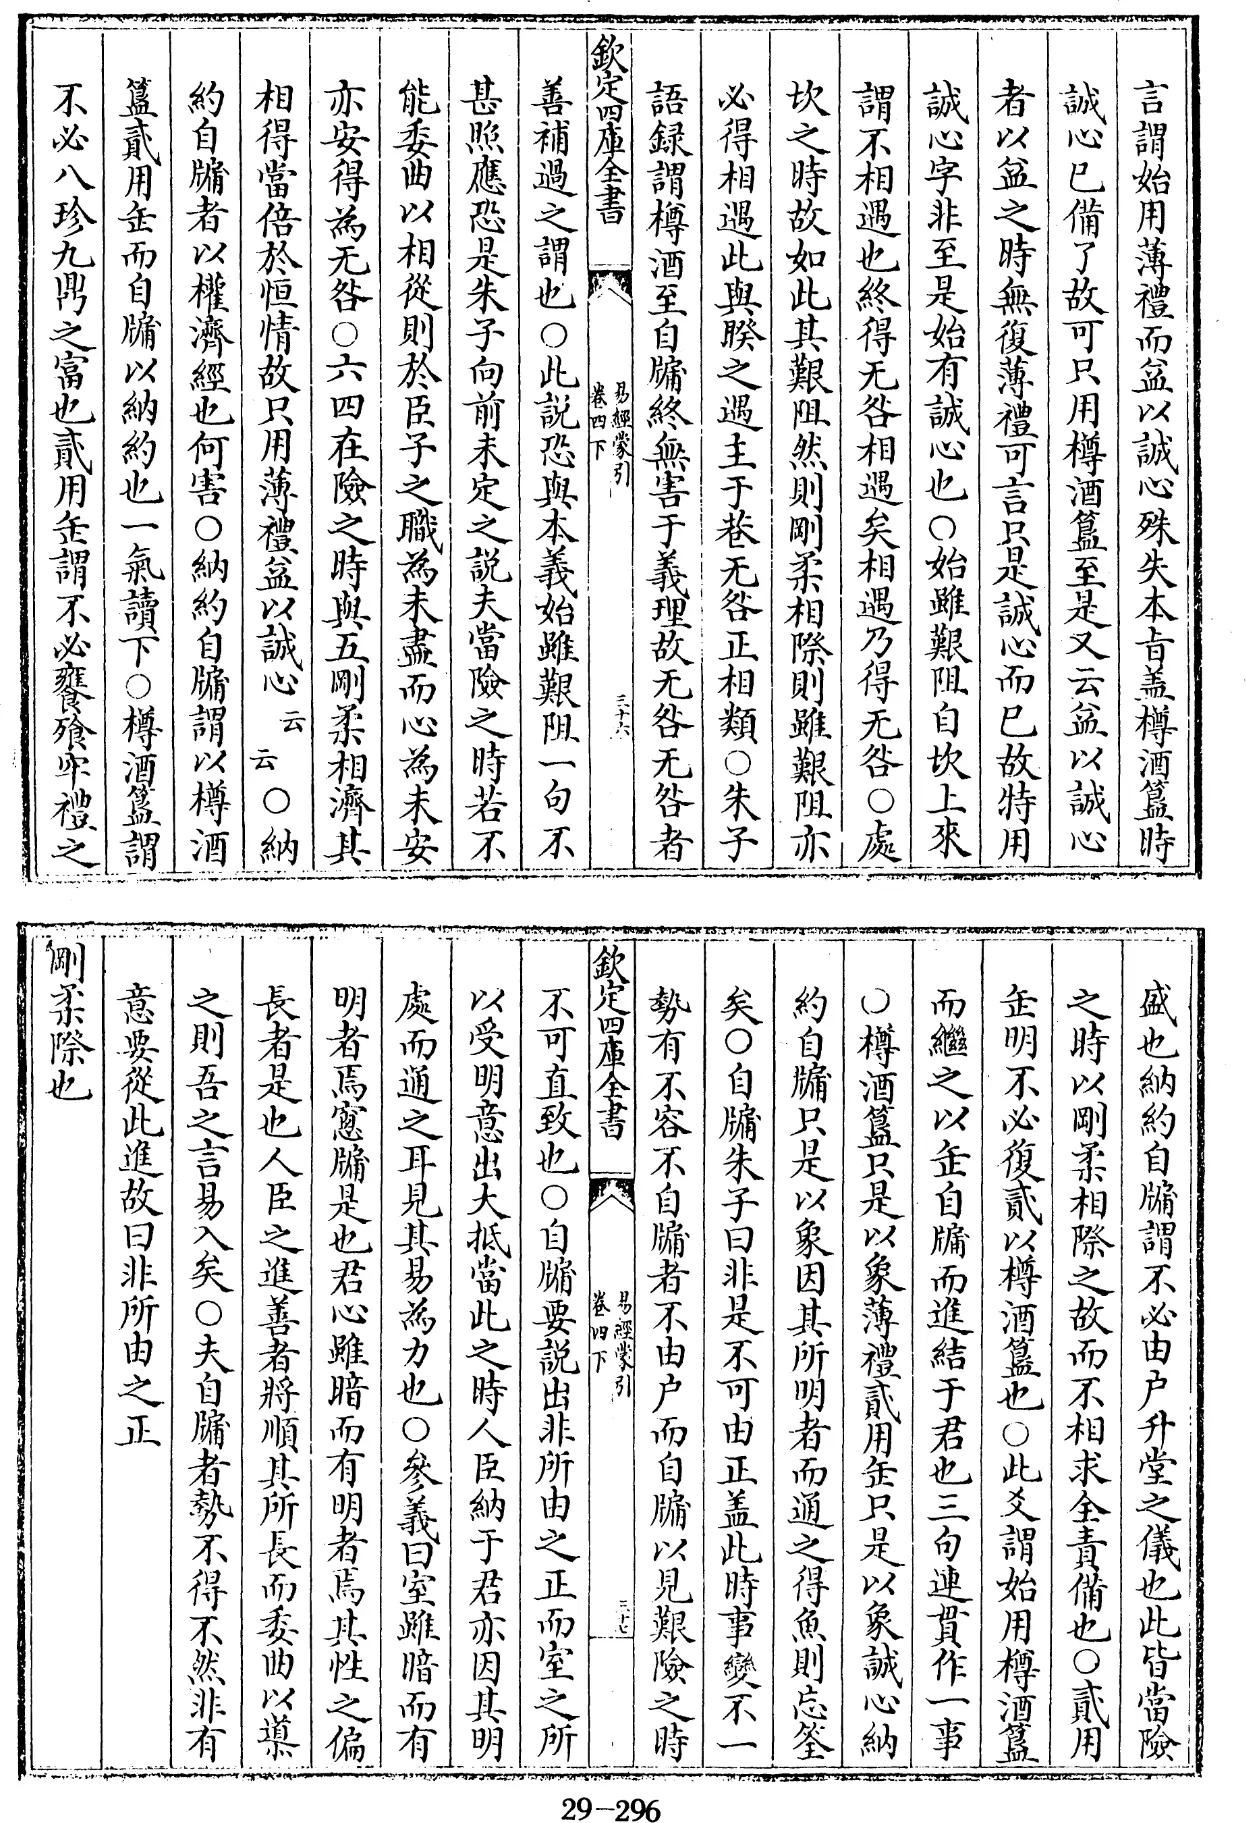 言謂始用薄禮而益以誠心殊失本旨盖樽酒簋時
誠心已備了故可只用樽酒簋至是又云益以誠心
者以益之時無復薄禮可言只是誠心而已故特用
誠心字非至是始有誠心也○始雖艱阻自坎上來
謂不相遇也終得无咎相遇矣相遇乃得无咎○處
坎之時故如此其艱阻然則剛柔相際則雖艱阻亦
必得相遇此與睽之遇主于巷无咎正相類○朱子
語録謂樽酒至自牖終無害于義理故无咎无咎者
欽定四庫全書
易經蒙引
卷四下
三十六
善補過之謂也○此說恐與本義始雖艱阻一句不
甚照應恐是朱子向前未定之說夫當險之時若不
能委曲以相從則於臣子之職為未盡而心為未安
亦安得為无咎○六四在險之時與五剛柔相濟其
相得當倍於恒情故只用薄禮益以誠心云云○納
約自牖者以權濟經也何害○納約自牖謂以樽酒
簋貳用缶而自牖以納約也一氣讀下○樽酒簋謂
不必八珍九鼎之富也貳用缶謂不必饔飱牢禮之
盛也納約自牖謂不必由户升堂之儀也此皆當險
之時以剛柔相際之故而不相求全責備也○貳用
缶明不必復貳以樽酒簋也○此爻謂始用樽酒簋
而繼之以缶自牖而進結于君也三句連貫作一事
○樽酒簋只是以象薄禮貳用缶只是以象誠心納
約自牖只是以象因其所明者而通之得魚則忘筌
矣○自牖朱子曰非是不可由正盖此時事變不一
勢有不容不自牖者不由户而自牖以見艱險之時
欽定四庫全書
易經蒙引
卷四下
三十七
不可直致也○自牖要說出非所由之正而室之所
以受明意出大抵當此之時人臣納于君亦因其明
處而通之耳見其易為力也○參義曰室雖暗而有
明者焉窻牖是也君心雖暗而有明者焉其性之偏
長者是也人臣之進善者將順其所長而委曲以導
之則吾之言易入矣○夫自牖者勢不得不然非有
意要從此進故曰非所由之正
剛柔際也
29-296